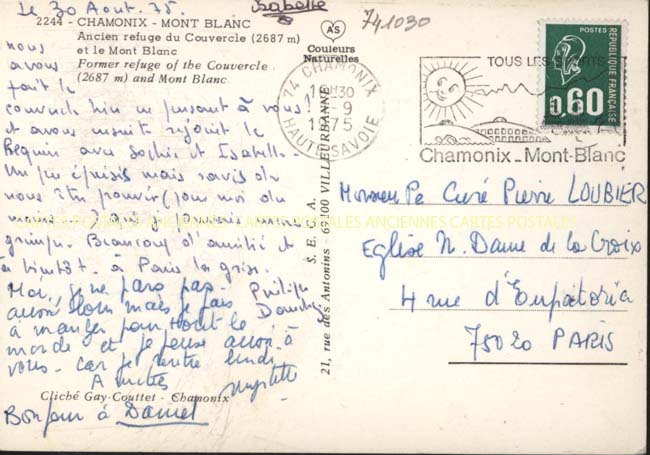 Le 30 Aout. 75.
Isabelle
741030
2244 - CHAMONIX - MONT BLANC
Ancien refuge du Couvercle (2687 m)
et le Mont Blanc
Former refuge of the Couvercle
(2687 m) and Mont Blanc
AS
Couleurs
Naturelles
nous
avons
fait le
couvercle hier en pensant à vous!
et avons ensuite rejoint le
Requin avec Sochin et Isabelle.
Un peu épuisés mais ravis de
nous être pour moi du
moins
grimpe. Beaucoup d'amitié et
à bientôt à Paris la grise.
Philippe
Moi, je ne pars pas
aussi loin mais je fais
à manger pour tout le
monde et je pense aussi à
vous car je rentre lundi
Amitiés
Bonjour à Daniel
Cliché Gay-Couttet - Chamonix
S. E. G. A.
21, rue des Antonins - 69100 VILLEURBANNE
74 CHAMONIX
HAUTE-SAVOIE
TOUS LES SPORTS
Chamonix_Mont-Blanc
POSTES
REPUBLIQUE FRANÇAISE
0,60
Monsieur Le Curé Pierre LOUBIER
Eglise N. Dame de la Croix
4 rue d'Eupatoria
75020 PARIS
CARTES POSTALES ANCIENNES CARTES POSTALES